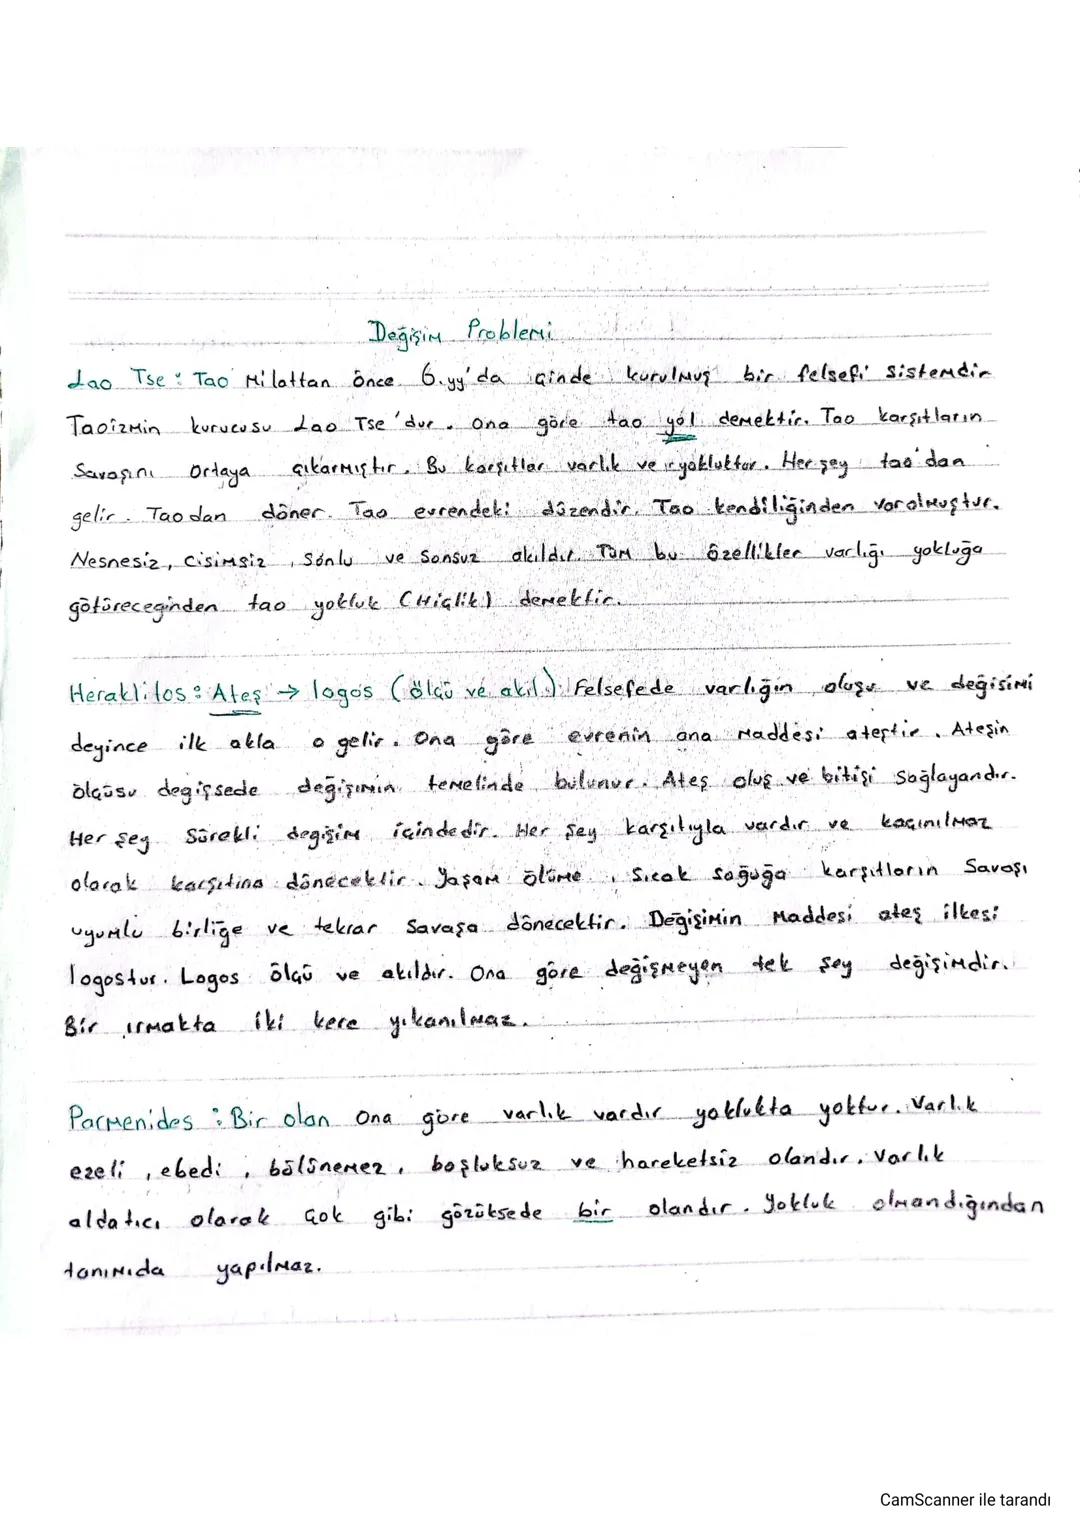 Değişim Problemi
Lao Tse : Tao Milattan önce 6.yy'da Çinde kurulmuş bir felsefi sistemdir
Taoizmin kurucusu Lao Tse'dur. Ona göre tao yol demektir. Tao karşıtların
Savaşını ortaya çıkarmıştır. Bu karşıtlar varlık ve yokluktur. Herşey tao'dan
gelir. Taodan döner. Tao evrendeki düzendir. Tao kendiliğinden varolmuştur.
Nesnesiz, cisimsiz, Sonlu ve Sonsuz akıldır. Tüm bu özellikler varlığı yokluğa
götüreceğinden tao yokluk (Hiçlik) demektir.
Heraklitos : Ateş → logos (ölçü ve akıl) Felsefede varlığın oluşu ve değişimi
deyince ilk akla o gelir. Ona göre evrenin ana maddesi ateştir. Ateşin
ölçüsü değişsede değişimin temelinde bulunur. Ateş oluş ve bitişi Sağlayandır.
Her Şey Sürekli değişim içindedir. Her Şey karşıtıyla vardır ve kaçınılmaz
olarak karşıtına dönecektir. Yaşam ölüme, Sıcak Soğuğa karşıtların Savaşı
uyumlu birliğe ve tekrar Savaşa dönecektir. Değişimin maddesi ateş ilkesi
logostur. Logos ölçü ve akıldır. Ona göre değişmeyen tek şey değişimdir.
Bir ırmakta iki kere yıkanılmaz.
Parmenides : Bir olan Ona göre varlık vardır yoklukta yoktur. Varlık
ezeli, ebedi, bölünemez, boşluksuz ve hareketsiz olandır. Varlık
aldatıcı olarak Çok gibi gözüksede bir olandır. Yokluk olmandığından
tanımıda yapılmaz.
CamScanner ile tarandı